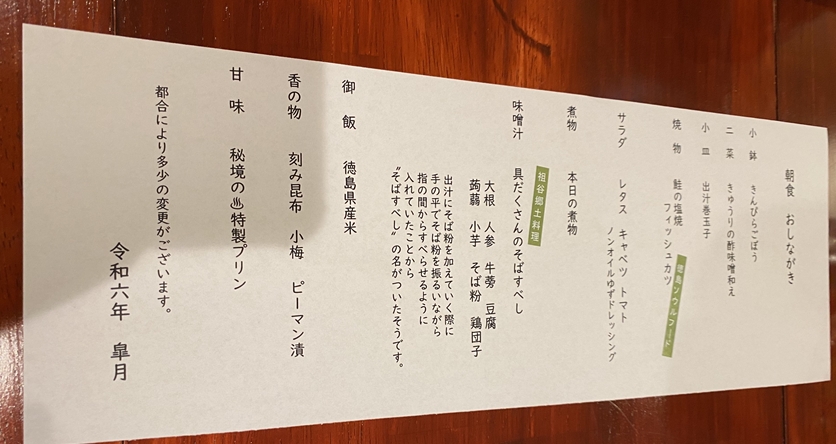 朝食　おしながき
小鉢　きんぴらごぼう
二菜　きゅうりの酢味噌和え
小皿　出汁巻玉子
焼物　鮭の塩焼
フィッシュカツ　徳島ソウルフード
サラダ　レタス　キャベツ　トマト
ノンオイルゆずドレッシング
煮物　本日の煮物
祖谷郷土料理
味噌汁　具だくさんのそばすべし
大根　人参　牛蒡　豆腐
蒟蒻　小芋　そば粉　鶏団子
出汁にそば粉を加えていく際に
手の平でそば粉を振るいながら
指の間からすべらせるように
入れていたことから
“そばすべし”の名がついたそうです。
御飯　徳島県産米
香の物　刻み昆布　小梅　ピーマン漬
甘味　秘境の♨特製プリン
都合により多少の変更がございます。
令和六年　皐月